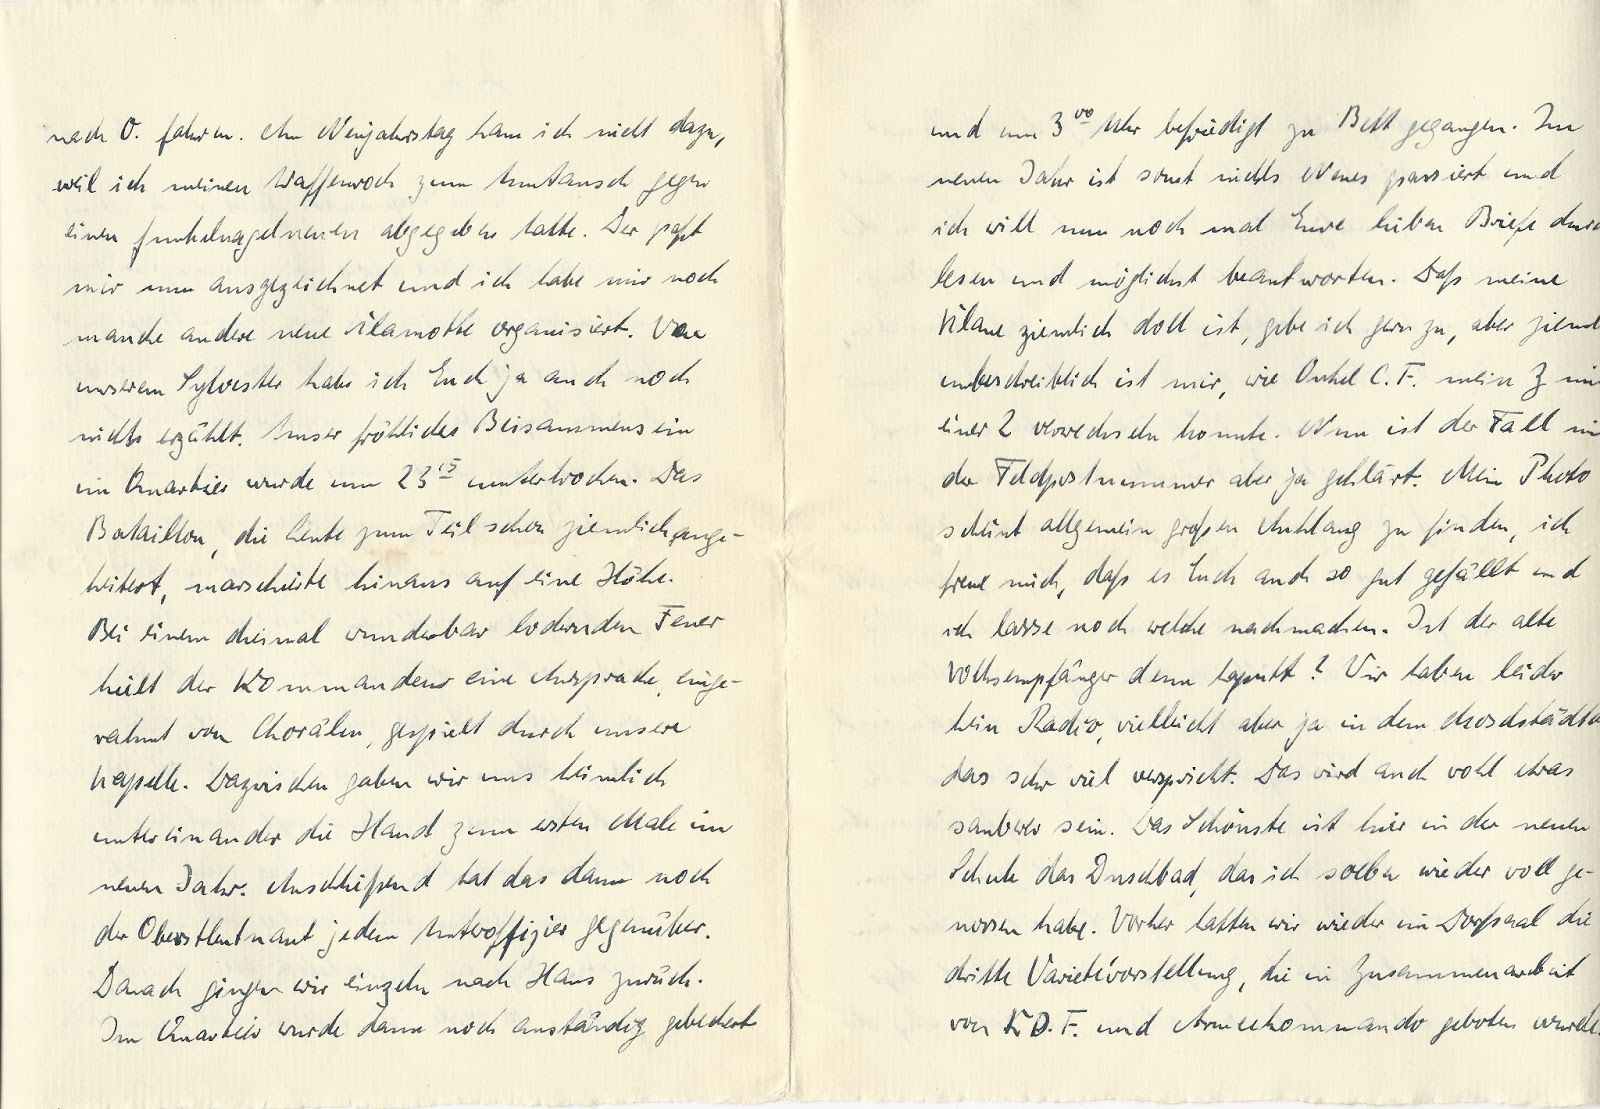 nach O. fahren. Am Neujahrstag kam ich nicht dazu,
weil ich meinen Waffenrock zum Umtausch gegen
einen funkelnagelneuen abgegeben hatte. Der paßt
mir nun ausgezeichnet und ich habe mir noch
manche andere neue Klamotte organisiert. Von
unserem Sylvester habe ich Euch ja auch noch
nichts erzählt. Unser fröhliches Beisammensein
im Quartier wurde um 23 15 unterbrochen. Das
Bataillon, die Leute zum Teil schon ziemlich ange-
heitert, marschierte hinaus auf eine Höhe.
Bei einem diesmal wunderbar lodernden Feuer
hielt der Kommandeur eine Ansprache, einge-
rahmt von Chorälen, gespielt durch unsere
Kapelle. Dazwischen gaben wir uns heimlich
untereinander die Hand zum ersten Male im
neuen Jahr. Anschließend tat das dann noch
der Oberstleutnant jedem Unteroffizier gegenüber.
Danach gingen wir einzeln nach Haus zurück.
Im Quartier wurde dann noch anständig gebechert
und um 3 00 Uhr befriedigt zu Bett gegangen. Im
neuen Jahr ist sonst nichts Neues passiert und
ich will nun noch mal Eure lieben Briefe durch
lesen und möglichst beantworten. Daß meine
Klaue ziemlich doll ist, gebe ich gern zu, aber ziemli
unbeschreiblich ist mir, wie Onkel C. F. mein Z mi
einer 2 verwechseln konnte. Nun ist der Fall mi
der Feldpostnummer aber ja geklärt. Mein Photo
scheint allgemein großen Anklang zu finden, ich
freue mich, daß es Euch auch so gut gefällt und
ich lasse noch welche nachmachen. Ist der alte
Volksempfänger denn kaputt? Wir haben leider
kein Radio, vielleicht aber ja in dem Mordstädtc
das sehr viel verspricht. Das wird auch wohl etwas
sauberer sein. Das Schönste ist hier in der neuen
Schule das Duschbad, das ich soeben wieder voll ge-
nossen habe. Vorher hatten wir wieder im Dorfsaal die
dritte Varietévorstellung, die in Zusammenarbeit
von K.D.F. und Armeekommando geboten wurde.